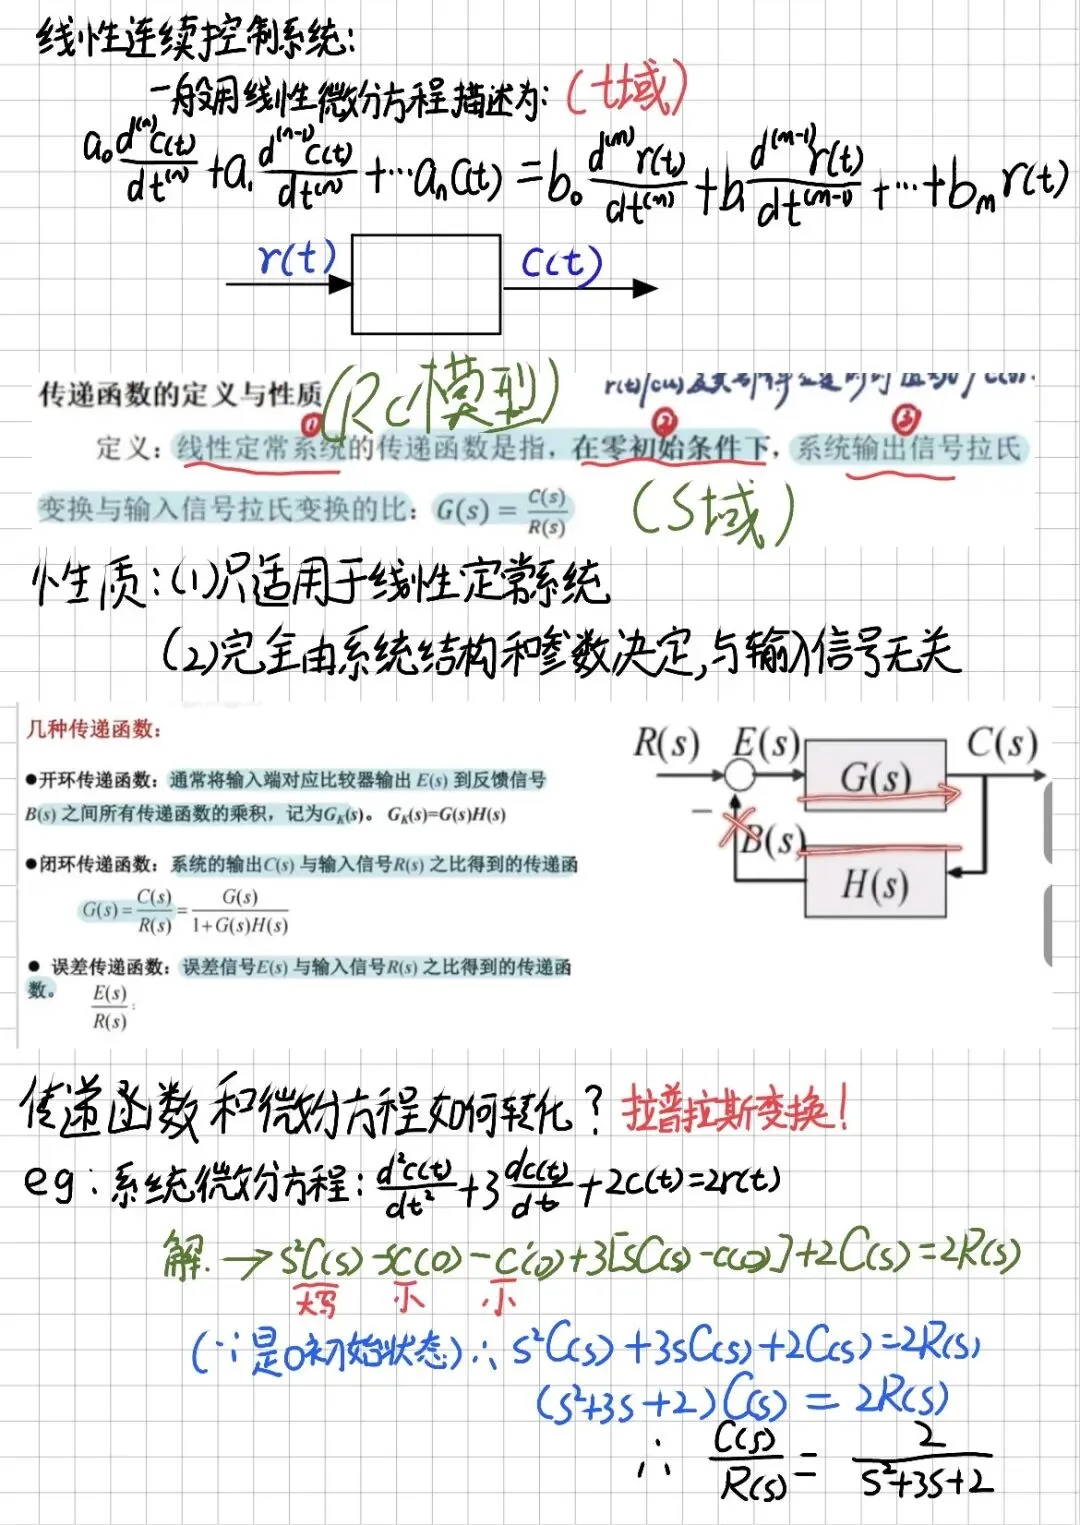 线性连续控制系统:
一般用线性微分方程描述为: (t域)
a₀ d⁽ⁿ⁾c(t)/dt⁽ⁿ⁾ + a₁ d⁽ⁿ⁻¹⁾c(t)/dt⁽ⁿ⁾ + ⋯ aₙc(t) = b₀ d⁽ᵐ⁾r(t)/dt⁽ᵐ⁾ + b₁ d⁽ᵐ⁻¹⁾r(t)/dt⁽ᵐ⁻¹⁾ + ⋯ + bₘr(t)
r(t) c(t)
传递函数的定义与性质 (RC模型)
① ② ③
定义: 线性定常系统的传递函数是指, 在零初始条件下, 系统输出信号拉氏
变换与输入信号拉氏变换的比: G(s) = C(s)/R(s) (S域)
性质: (1)只适用于线性定常系统
(2)完全由系统结构和参数决定,与输入信号无关
几种传递函数:
●开环传递函数: 通常将输入端对应比较器输出 E(s) 到反馈信号
B(s) 之间所有传递函数的乘积, 记为G_K(s)。 G_K(s)=G(s)H(s)
●闭环传递函数: 系统的输出C(s) 与输入信号R(s) 之比得到的传递函
G(s) = C(s)/R(s) = G(s)/1+G(s)H(s)
● 误差传递函数: 误差信号E(s) 与输入信号R(s) 之比得到的传递函
数。 E(s)/R(s) :
R(s) E(s) G(s) C(s)
− B(s)
H(s)
传递函数和微分方程如何转化? 拉普拉斯变换!
eg: 系统微分方程: d²c(t)/dt² + 3 dc(t)/dt + 2c(t) = 2r(t)
解. → s²C(s) - sc(0) - c'(0) + 3[sC(s) - c(0)] + 2C(s) = 2R(s)
大写 小 小
(∵是0初始状态) ∴ s²C(s) + 3sC(s) + 2C(s) = 2R(s)
(s²+3s+2)C(s) = 2R(s)
∴ C(s)/R(s) = 2/s²+3s+2